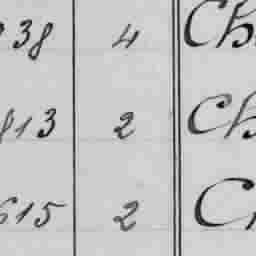 38 4 Ch
813 2 Ch
615 2 C